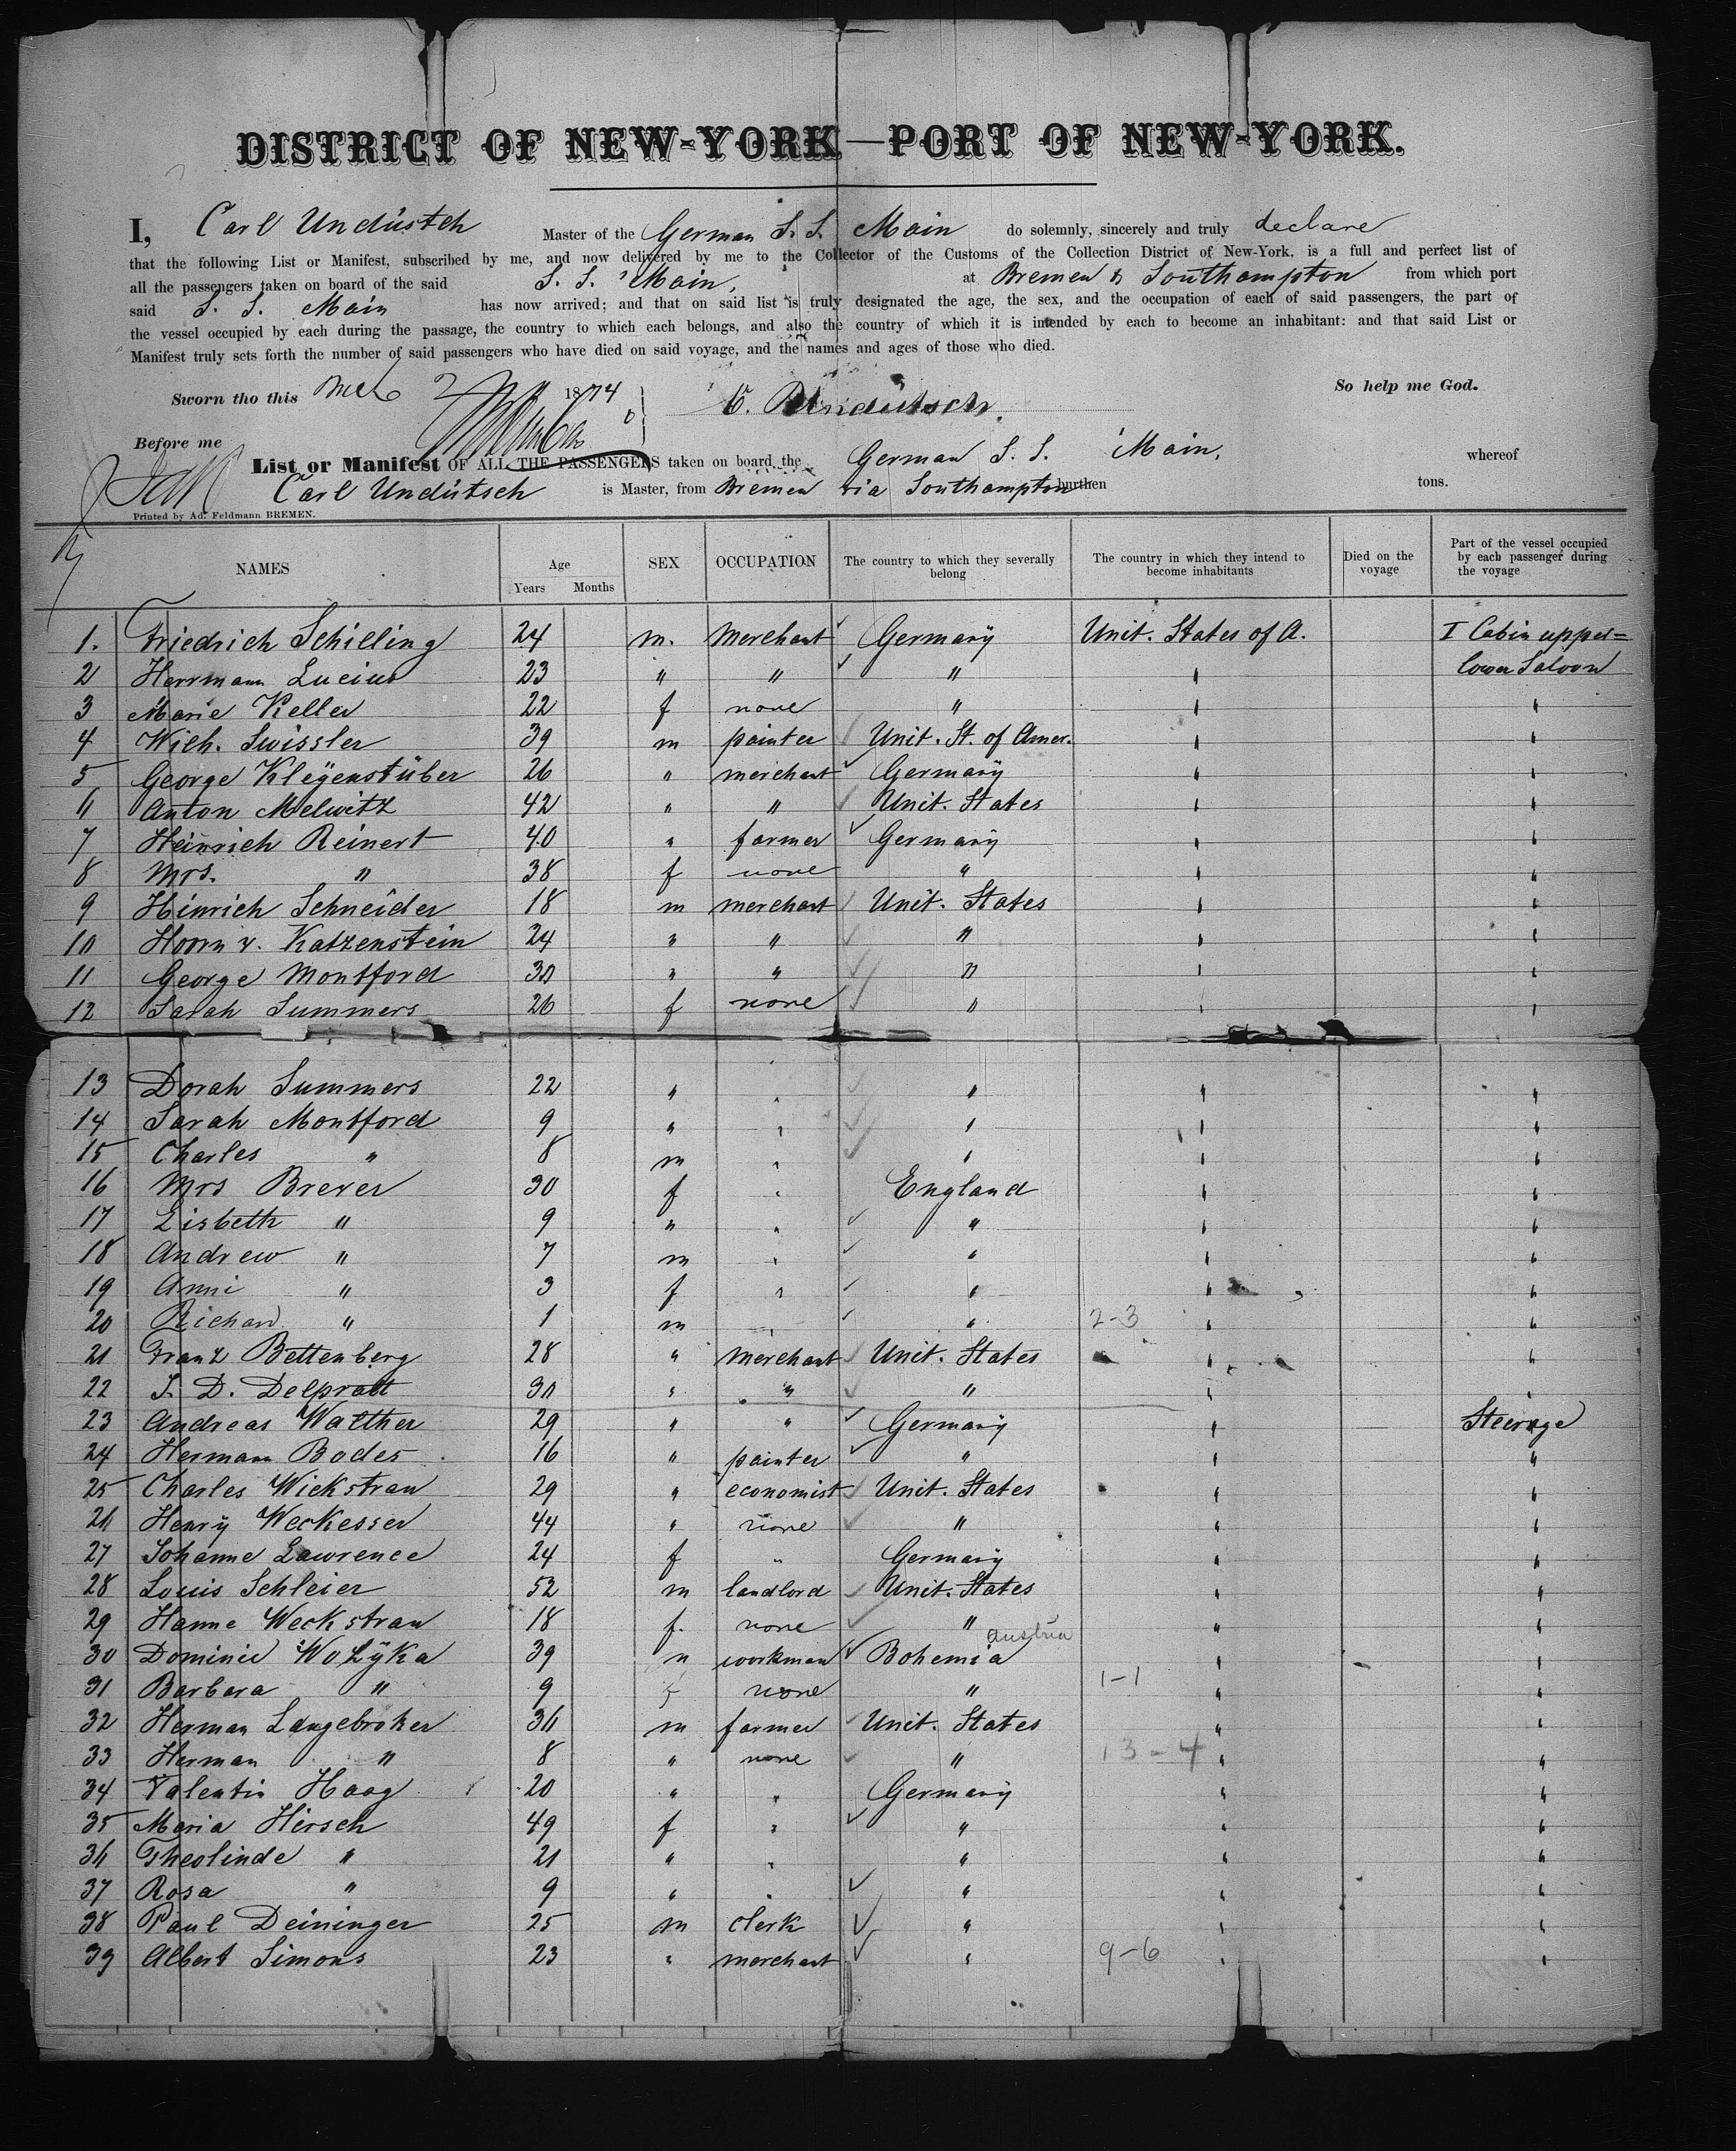 DISTRICT OF NEW-YORK—PORT OF NEW-YORK.
I, Carl Undütsch Master of the German S. S. Main do solemnly, sincerely and truly declare
that the following List or Manifest, subscribed by me, and now delivered by me to the Collector of the Customs of the Collection District of New-York, is a full and perfect list of
all the passengers taken on board of the said S. S. Main, at Bremen & Southampton from which port
said S. S. Main has now arrived; and that on said list is truly designated the age, the sex, and the occupation of each of said passengers, the part of
the vessel occupied by each during the passage, the country to which each belongs, and also the country of which it is intended by each to become an inhabitant: and that said List or
Manifest truly sets forth the number of said passengers who have died on said voyage, and the names and ages of those who died.
Sworn tho this 2 1874 C. Undütsch. So help me God.
Before me
List or Manifest OF ALL THE PASSENGERS taken on board the German S. S. Main, whereof
Carl Undütsch is Master, from Bremen via Southampton burthen tons.
Printed by Ad. Feldmann BREMEN.
NAMES Age Years Months SEX OCCUPATION The country to which they severally belong The country in which they intend to become inhabitants Died on the voyage Part of the vessel occupied by each passenger during the voyage
1. Friedrich Schilling 24 m. Merchant Germany Unit. States of A. I Cabin upper=
2 Herrmann Lucius 23 " " " " lower Saloon
3 Marie Keller 22 f none " " "
4 Wilh. Swissler 39 m painter Unit. St. of Amer. " "
5 George Kleyenstüber 26 " merchant Germany " "
6 Anton Melwitz 42 " " Unit. States " "
7 Heinrich Reinert 40 " farmer Germany " "
8 Mrs. " 38 f none " " "
9 Hinrich Schneider 18 m merchant Unit. States " "
10 Hoorn v. Katzenstein 24 " " " " "
11 George Montford 30 " " " " "
12 Sarah Summers 26 f none " " "
13 Dorah Summers 22 " " " " "
14 Sarah Montford 9 " " " " "
15 Charles " 8 m " " " "
16 Mrs Brever 30 f " England " "
17 Lisbeth " 9 " " " " "
18 Andrew " 7 m " " " "
19 Anni " 3 f " " " "
20 Richard " 1 m " " 2-3 " "
21 Franz Bettenberg 28 " merchant Unit. States " "
22 J. D. Delpratt 30 " " " " "
23 Andreas Walther 29 " " Germany " Steerage
24 Hermann Bodes 16 " painter " " "
25 Charles Wickstraw 29 " economist Unit. States " "
26 Henry Weckesser 44 " none " " "
27 Johanne Lawrence 24 f " Germany " "
28 Louis Schleier 52 m landlord Unit. States " "
29 Hanne Weckstraw 18 f. none " " "
30 Dominic Wolyka 39 m workman Bohemia austria " "
31 Barbara " 9 f none " 1-1 " "
32 Herman Langebröker 36 m farmer Unit. States " "
33 Herman " 8 " none " 13-4 " "
34 Valentin Haag 20 " " Germany " "
35 Maria Hirsch 49 f " " " "
36 Theolinde " 21 " " " " "
37 Rosa " 9 " " " " "
38 Paul Deininger 25 m clerk " " "
39 Albert Simons 23 " merchant " 9-6 " "